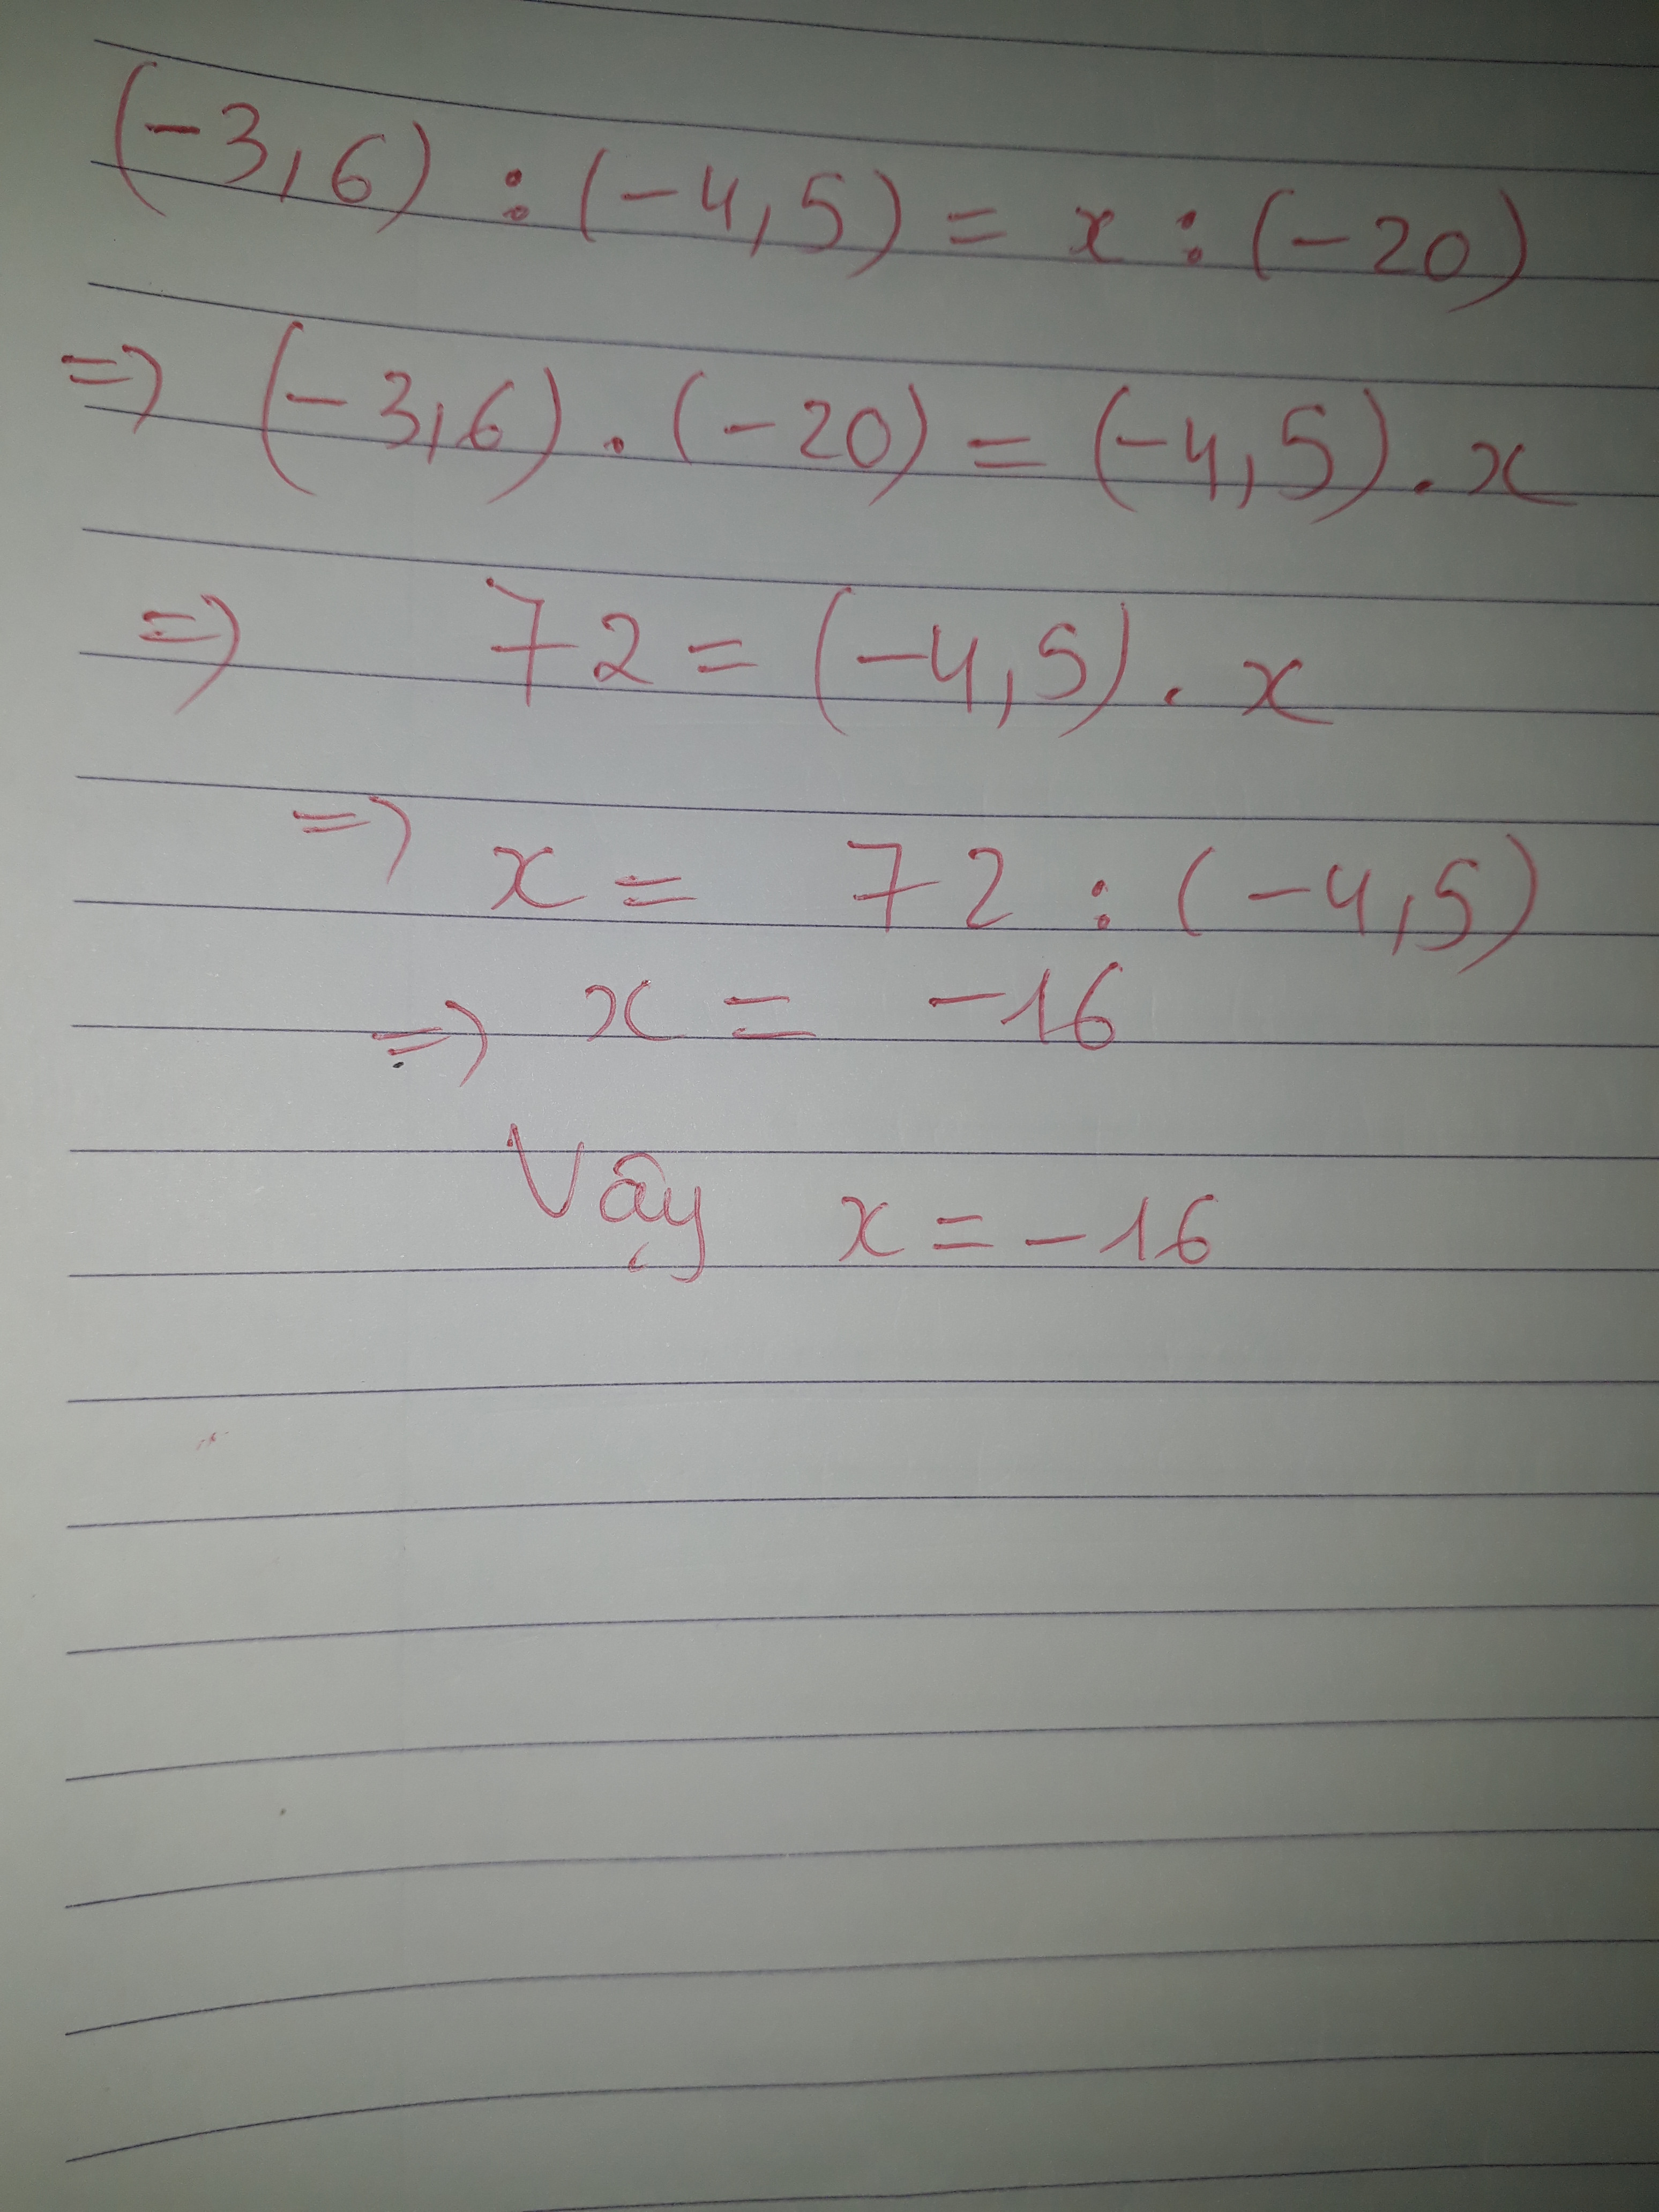 (-3,6) : (-4,5) = x : (-20)
=> (-3,6) . (-20) = (-4,5) . x
=> 72 = (-4,5) . x
=> x = 72 : (-4,5)
=> x = -16
Vậy x = -16